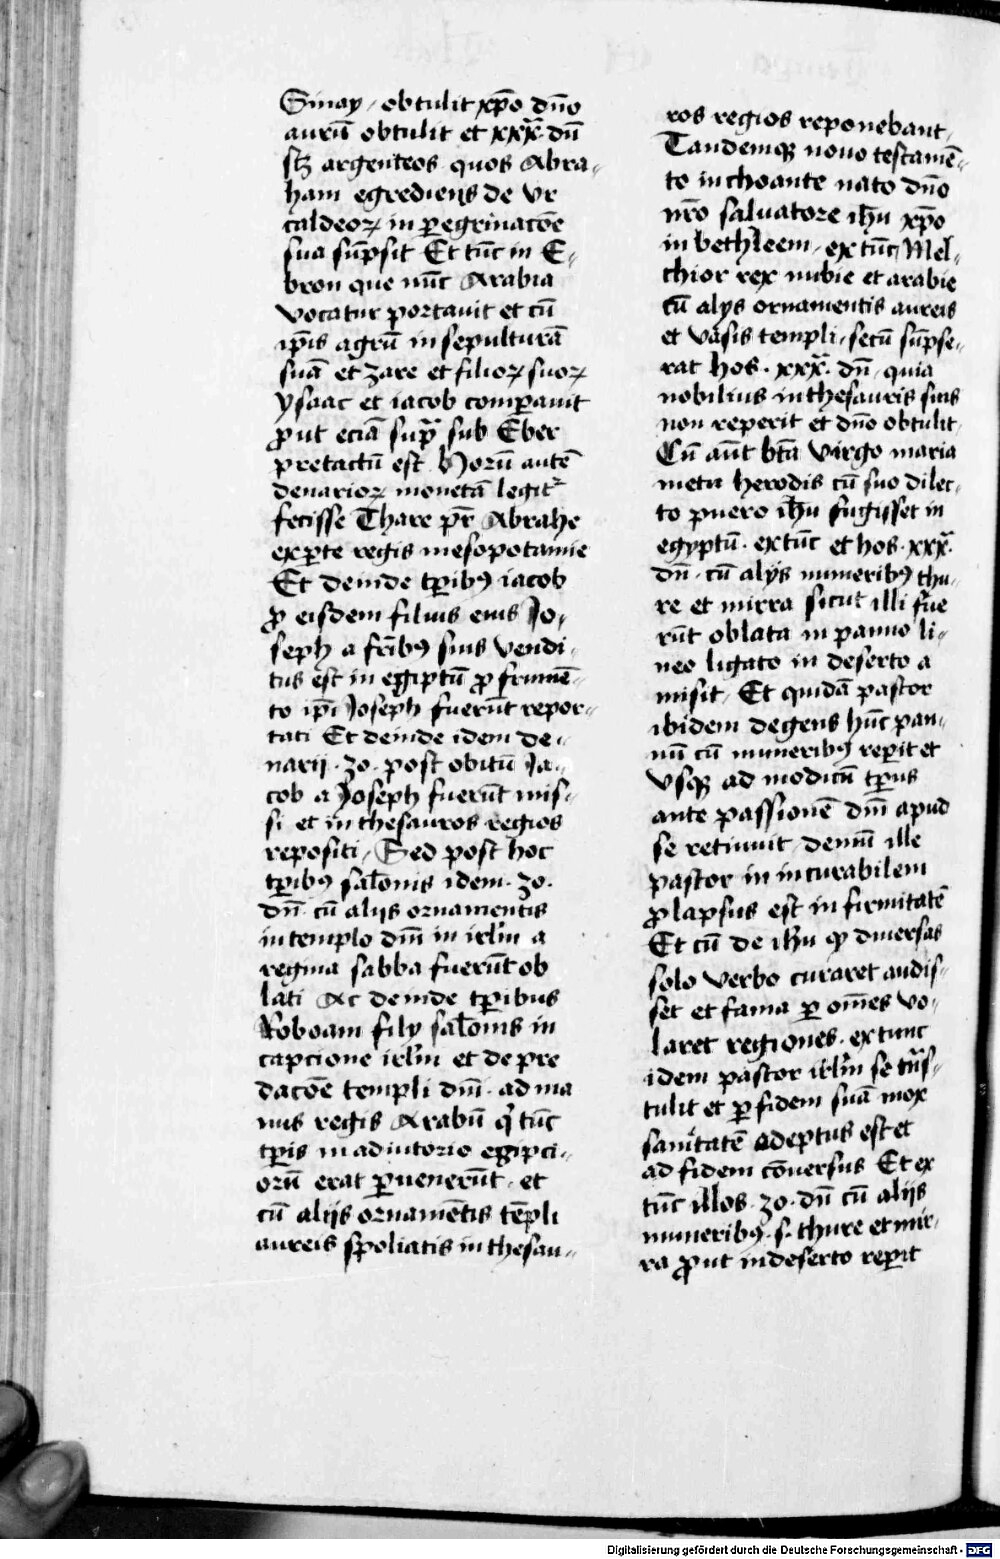 Sinay / obtulit xp̄o dn̄o
aurū obtulit et xxxͣ. dn̄
sꝫ argenteos quos Abra-
ham egrediens de Vr
caldeoꝝ in ꝑegrinacōe
sua sūpsit Et tūc in E-
bron que nūc Arabia
vocatur portauit et cū
ip̄is agrū in sepulturā
suā et zare et filioꝝ suoꝝ
ysaac et iacob comꝑauit
ꝓut eciā supͣ sub Eber
pretactū est Horū autē
denarioꝝ monetā legitᷣ
fecisse Thare pr̄ Abrahe
ex ꝑte regis mesopotamie
Et deinde tꝑibꝰ iacob
ꝓ eisdem filius eius Jo-
seph a fr̄ibꝰ suis vendi-
tus est in egiptū ꝓ frumē-
to ip̄i Joseph fuerūt repor-
tati Et deinde idem de-
narii . 30 . post obitū Ja-
cob a Joseph fuerūt mis-
si et in thesauros regios
repositi / Sed post hoc
tꝑibꝰ salōnis idem . 30 .
dn̄ . cū aliis ornamentis
in templo dn̄i in irlm̄ a
regina sabba fuerūt ob
lati Ac deinde tꝑibus
Roboam fily salōnis in
capcione irlm̄ et de pre
dacōe templi dn̄i . ad ma
nus regis Arabū qͥ tūc
tꝑis in adiutorio egipci-
orū erat ꝑuenerūt . et
cū aliis ornamētis tēpli
aureis spoliatis in thesau-
ros regios reponebant .
Tandemqꝫ nouo testamē-
to inchoante nato dn̄o
nr̄o saluatore ih̄u xp̄o
in bethleem / ex tūc Mel-
chior rex nubie et arabie
cū alys ornamentis aureis
et vasis templi / secū sūpse-
rat hos . xxxͣ . dn̄ / quia
nobilius in thesauris suis
non reperit et dn̄o obtulit
Cū aūt btā virgo maria
metu herodis cū suo dilec-
to puero ih̄u fugisset in
egyptū . ex tūc et hos . xxxͣ .
dn̄ . cū alijs muneribꝰ thu-
re et mirra sicut illi fue
rūt oblata in panno li-
neo ligato in deserto a
misit / Et quidā pastor
ibidem degens hūc pan-
nū cū muneribꝰ reꝑit et
vsqꝫ ad modicū tꝑus
ante passionē dn̄i apud
se retinuit / demū ille
pastor in incurabilem
ꝓlapsus est infirmitatē
Et cū de ih̄u ꝙ diuersas
solo verbo curaret audis-
set et fama ꝑ om̄es vo-
laret regiones . ex tunc
idem pastor irlm̄ se trͣns-
tulit et ꝑ fidem suā mox
sanitatē adeptus est et
ad fidem cōuersus Et ex
tūc illos . 30 . dn̄ cū aliis
muneribꝰ . s . thure et mir-
ra ꝓut in deserto reꝑit
Digitalisierung gefördert durch die Deutsche Forschungsgemeinschaft - DFG